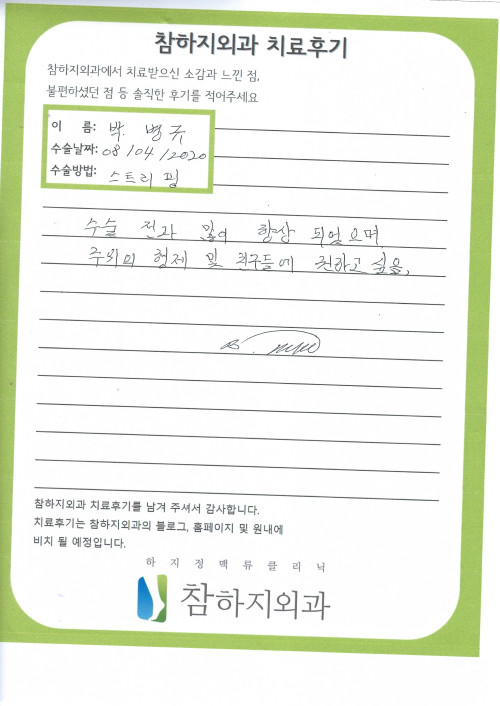 참하지외과 치료후기
참하지외과에서 치료받으신 소감과 느낀 점,
불편하셨던 점 등 솔직한 후기를 적어주세요
이 름: 박 병규
수술날짜: 08/04/2020
수술방법: 스트리핑
수술 전과 많이 향상 되었으며
주위의 형제 및 친구들에 권하고 싶음,
참하지외과 치료후기를 남겨 주셔서 감사합니다.
치료후기는 참하지외과의 블로그, 홈페이지 및 원내에
비치 될 예정입니다.
하지정맥류클리닉
참하지외과